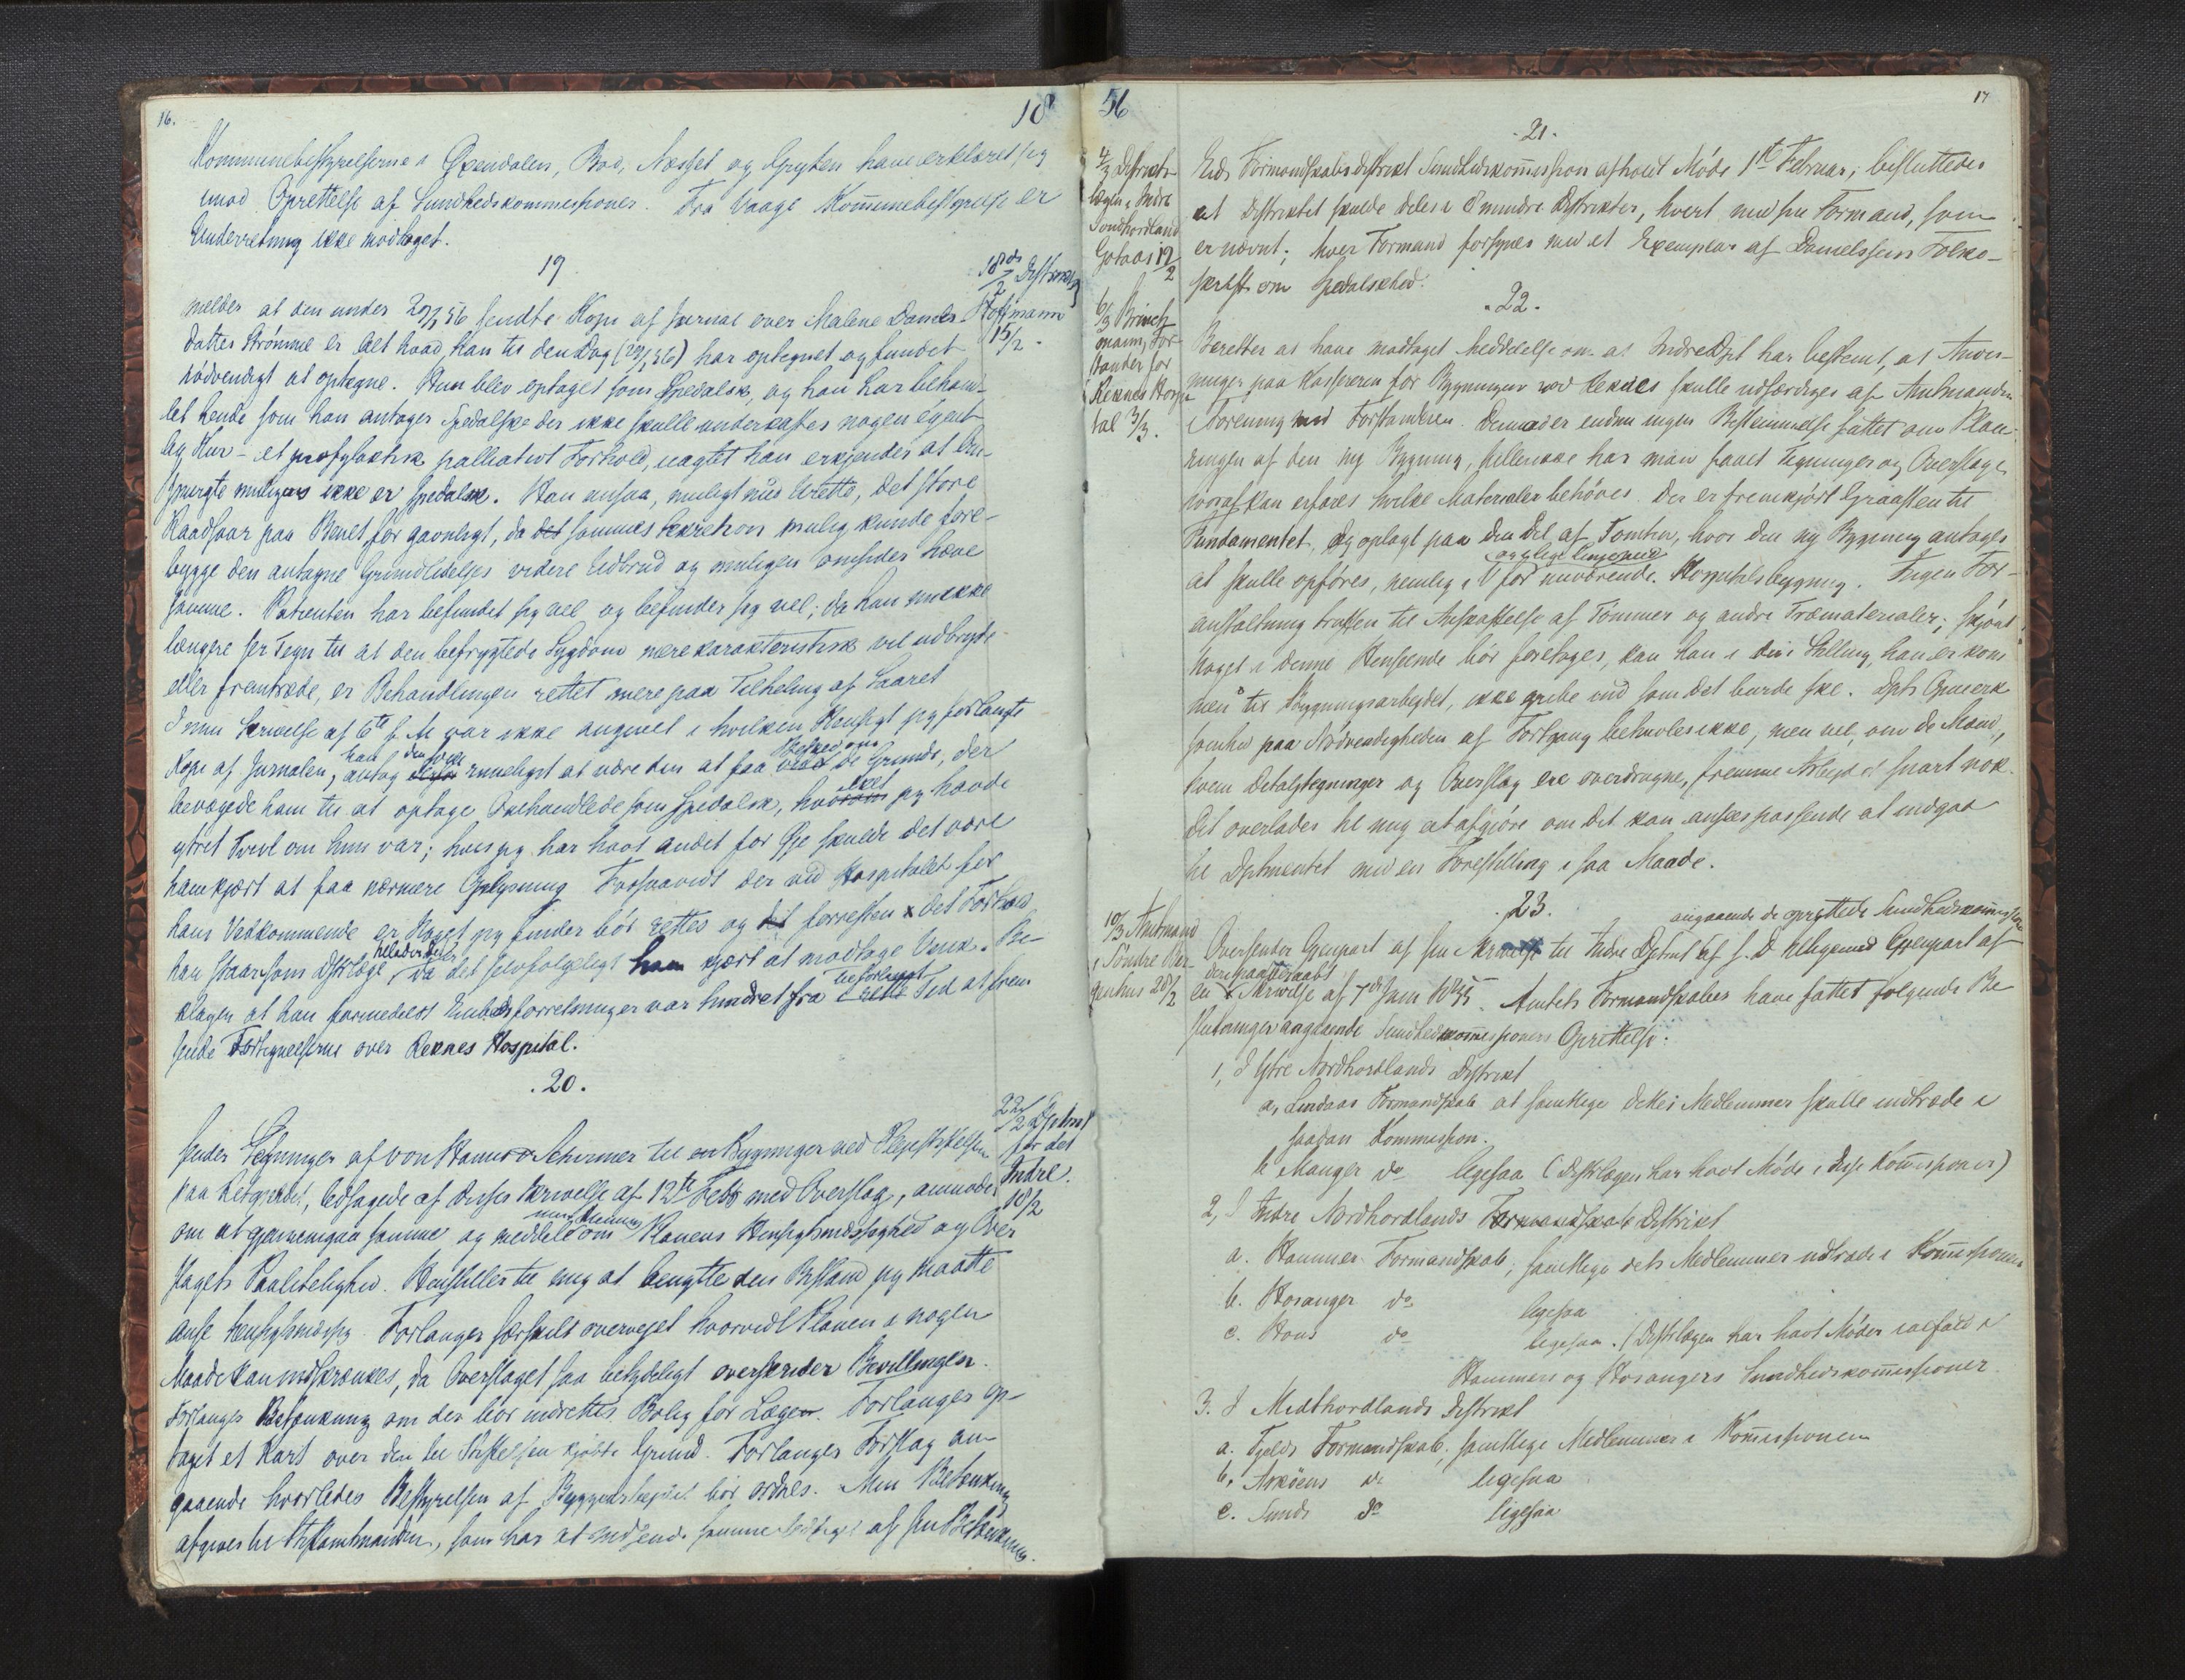 16.
18
Kommunebestyrelserne i Øxendalen, Bod, Næsset og Grytten have erklæret sig
imod Oprettelse af Sundhedskommissioner. Fra Vaage Kom̄unebestyrelse er
Underretning ikke modtaget.
19
18de/2 Distriktsl
Hoffmann
15/2.
melder at den under 29/1 56 sendte Kopi af Jurnal over Malene Daniels
datter Strømme er Alt hvad, han til den Dag (29/1 56) har optegnet og fundet
nødvendigt at optegne. Hun blev optaget som Spedalsk, og han har behand-
let hende som han antager Spedalske der ikke skulle underkastes nogen egent-
lig Kur - et profylaktisk palliativt Forhold, uagtet han erkjender at An-
spurgte muligens ikke er spedalsk. Han ansaa, muligt med Urette, det store
Haadsaar paa Benet for gavnligt, da det sammes Sekretion mulig kunde fore-
bygge den antagne Grundlidelses videre Udbrud og muligen omsider hæve
samme. Patienten har befundet sig vel og befinder sig vel; da han nu ikke
længere ser Tegn til at den befrygtede Sygdom mere karakteristisk vil udbryde
eller fremtræde, er Behandlingen rettet mere paa Tilheling af Saaret
I min Skrivelse af 6te f. M var ikke angivet i hvilken Hensigt jeg forlangte
Kopi af Jurnalen, han antog den rimeligst at være den at faa Besked om de Grunde, der
bevægede ham til at optage Omhandlede som Spedalsk, hvilket jeg havde
ytret Tvivl om hun var; hvis jeg har havt andet for Øje skulde det være
ham kjært at faa nærmere Oplysning Forsaavidt der ved Hospitalet for
hans Vedkommende er Noget jeg finder bør rettes og det forresten x det Forhold
han staar som Distrlæge, da det selvfølgeligt ham kjært at modtage Vink. Be-
klager at han formedelst Embedsforretninger var hindret fra i rette Tid at frem
sende Fortegnelserne over Reknes Hospital.
.20.
22/2 Dptmt
for det
Indre.
18/2
sender Tegninger af von Hanno & Schirmer til en Bygninger ved Pleiestiftelsen
paa ledsagede af disses Skrivelse af 12te Febr med Overslag, anmoder
om at gjennemgaa samme og meddele min Mening om Planens Hensigtsmæssighed og Over
slagets Paalidelighed. Henstilles til mig at benytte den Bistand jeg maatte
anse hensigtsmæssig. Forlanger særskilt overvejet hvorvidt Planen i nogen
Maade kan indskrænkes, da Overslaget saa betydeligt overskrider Bevillingen.
Forlanger Betænkning om der bør indrettes Bolig for Lægen. Forlanger op-
taget et Kart over den til Stiftelsen kjøbte Grund. Forlanger Forslag an-
gaaende hvorledes Bestyrelsen af Byggearbejdet bør ordnes. Min Betænkning
afgives til Stiftamtmanden, som har at indsende samme ledsaget af sin Betænkning.
56
17
.21.
4/3 Distrikts-
lægen i Indre
Søndhordland
Gotaas 17/2
Eids Formandskabsdistrikt Sundhedskom̄ission afholdt Møde 1ste Februar, besluttedes
at Distriktet skulde deles i 8 mindre Distrikter, hvert med sin Formand, som
er nævnt; hver Formand forsynes med et Exemplar af Danielssens Folke-
skrift om Spedalskhed.
.22.
6/3 Brinch
mann, For-
stander for
Reknes Hospi
tal 3/3.
Beretter at have modtaget Meddelelse om at Indre Dpt har bestemt, at Anvis-
ninger paa Kassereren for Bygningen ved Reknes skulle udfærdiges af Amtmanden
i Forening med Forstanderen. Derimod er endnu ingen Bestemmelse fattet om Plan-
ringen af den ny Bygning, hellerikke har man faaet Tegninger og Overslag
hvoraf kan erfares hvilke Materialer behøves. Der er fremkjørt Graasten til
Fundamentet og oplagt paa den Del af Tomten, hvor den ny Bygning antages
at skulle opføres, nemlig i V for nuværende. Hospitalsbygning. Ingen For-
anstaltning truffen til Anskaffelse af Tømmer og andre Træmaterialer; skjønt
Noget i denne Henseende bør foretages, kan han i den Stilling, han er kom
men til Bygningsarbejdet, ikke gribe ind som det burde ske. Dpts Opmærk
somhed paa Nødvendigheden af Fortgang betvivles ikke, men vel, om de Mænd,
hvem Detaljtegninger og Overslag ere overdragne, fremme Arbejdet snart nok.
Det overlades til mig at afgjøre om det kan ansees passende at indgaa
til Dptmentet med en Forestilling i saa Maade.
.23.
10/3 Amtmand
i Søndre Ber-
genhus 28/2
angaaende de oprettede Sundhedskom̄issioner
Oversender Gjenpart af sin Skrivelse til Indre Dptmt af s. D tilligemed Gjenpart af
en Skrivelse af 7de Juni 1855. Amtets Formandskaber have fattet følgende Be
slutninger angaaende Sundhedskom̄issioners Oprettelse:
1, I Ytre Nordhordlands Distrikt
a, Lindaas Formandskab at samtlige dettes Medlemmer skulle indtræde i
saadan Kommission.
b Manger do ligesaa (Distrlægen har havt Møde i disse Kom̄issioner)
2, I Indre Nordhordlands Formandskab Distrikt
a. Hammer Formandskab, samtlige dets Medlemmer indtræde i Kom̄issionen
b. Hosanger do ligesaa
c. Hous do ligesaa. (Distrlægen har havt Møder ialfald i
Hammers og Hosangers Sundhedskom̄issioner.
3. I Midthordlands Distrikt
a. Fjelds Formandskab, samtlige Medlemmer i Kom̄issionen
b. Askøens do ligesaa
c. Sunds do ligesaa